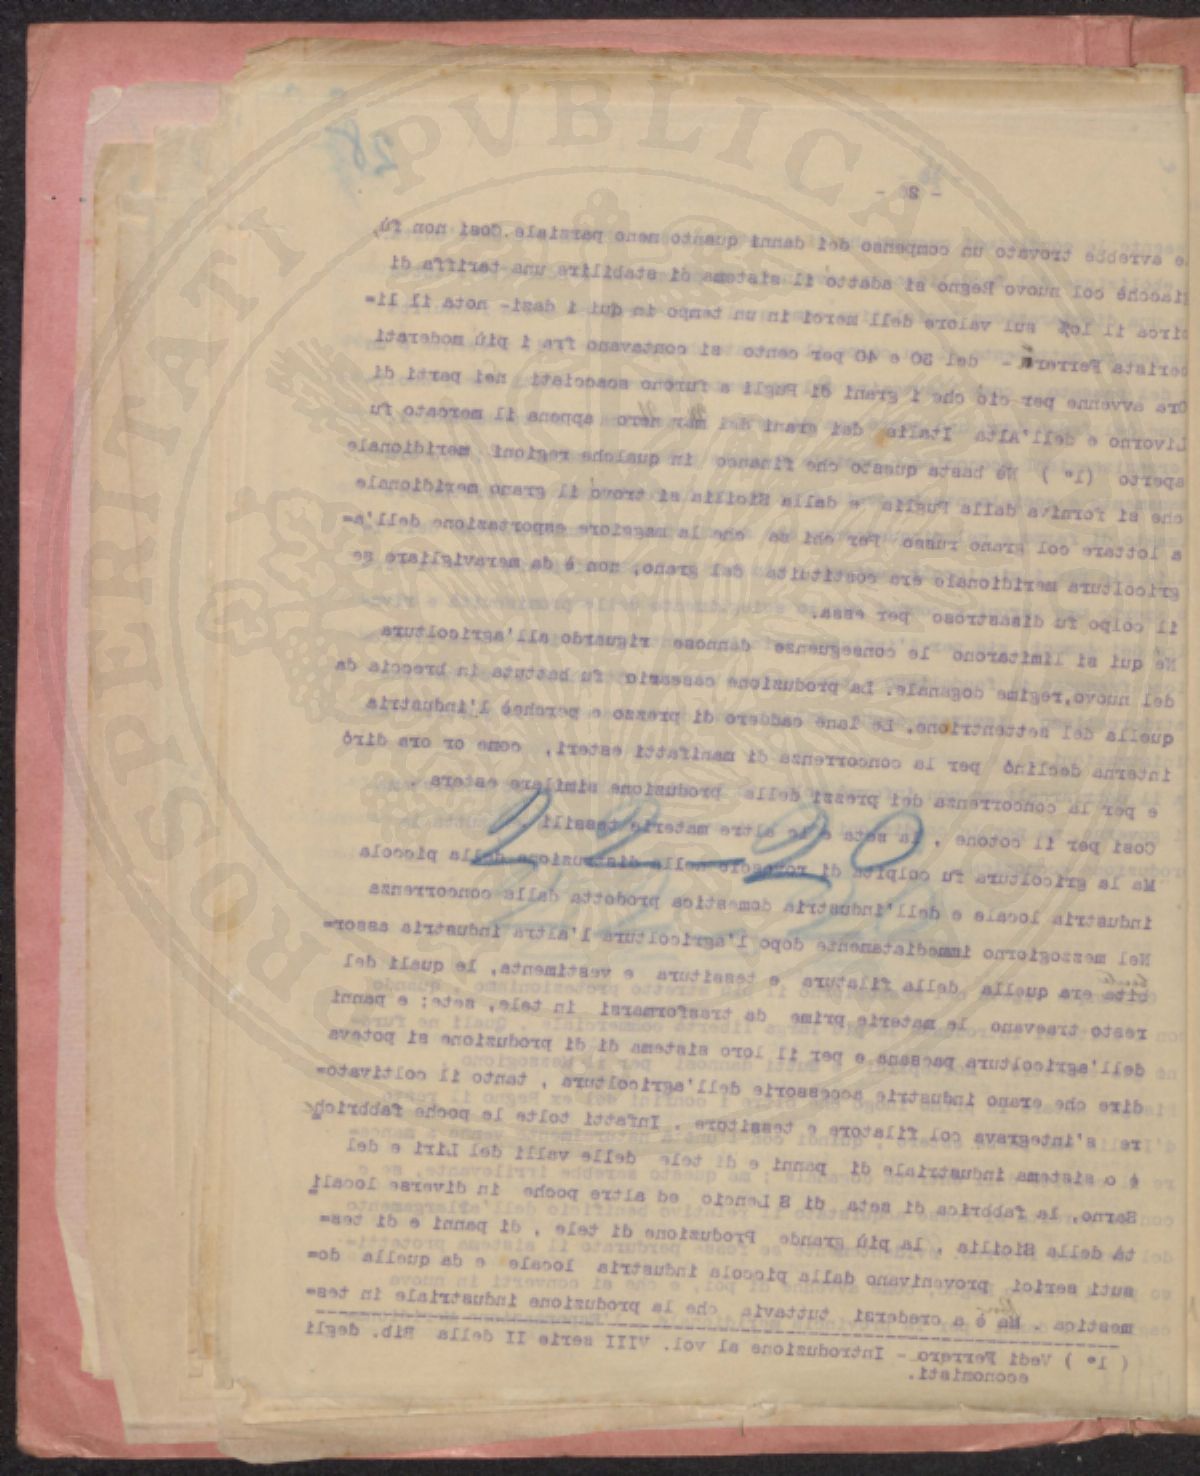 28
- 28 -
le avrebbe trovato un compenso dei danni quanto meno parziale.Cosi non fù,
giacchè col nuovo Regno si adattò il sistema di stabilire una tariffa di
circa il 10% sul valore dell merci in un tempo in qui i dazi- nota il li=
berista Ferrera - del 30 e 40 per cento si contavano fra i più moderati
Ora avvenne per ciò che i grani di Pugli a furono scacciati nei porti di
Livorno e dell'Alta Italia dai grani del mar nero appena il mercato fu
aperto (1° ) Nè basta questo che financo in qualche regioni meridionale
che si forniva dalla Puglia e dalla Sicilia si trovò il grano meridionale
a lottare col grano russo Per chi sa che la maggiore esportazione dell'a=
gricoltura meridionale era costituita dal grano, non è da meravigliare se
il colpo fu disastroso per essa.
Nè qui si limitarono le conseguenze dannose riguardo all'agricoltura
del nuovo,regime doganale. La produzione casearia fu battuta in breccia da
quella del settentrione. Le lane caddero di prezzo e perchè l'industria
interna declinò per la concorrenza di manifatti esteri, come or ora dirò
e per la concorrenza dei prezzi della produzione similare estera .
Cosi per il cotone , la seta e le altre materie tessili
Ma la gricoltura fu colpita di rovescio nella distruzione della piccola
industria locale e dell'industria domestica prodotta dalla concorrenza
Nel mezzogiorno immediatamente dopo l'agricoltura l'altra industria assor=
bita era quella della filatura e tessitura e vestimenta, le quali del
resto traevano le materie prime da trasformarsi in tele, sete; e panni
dell'agricoltura paesana e per il loro sistema di di produzione si poteva
dire che erano industrie accessorie dell'agricoltura , tanto il coltivato=
re s'integrava col filatore e tessitore . Infatti tolte le poche fabbriche
è o sistema industriale di panni e di tele delle valli del Liri e del
Sarno, la fabbrica di seta di S Lencio ed altre poche in diverse locali
tà della Sicilia , la più grande Produzione di tele , di panni e di tes=
suti serici provenivano dalla piccola industria locale e da quella do=
mestica . Ma è a credersi tuttavia che la produzione industriale in tes=
( 1° ) Vedi Ferrero - Introduzione al vol. VIII serie II della Bib. degli
economisti.
22-20
PROSPERITATI PVBLICAE